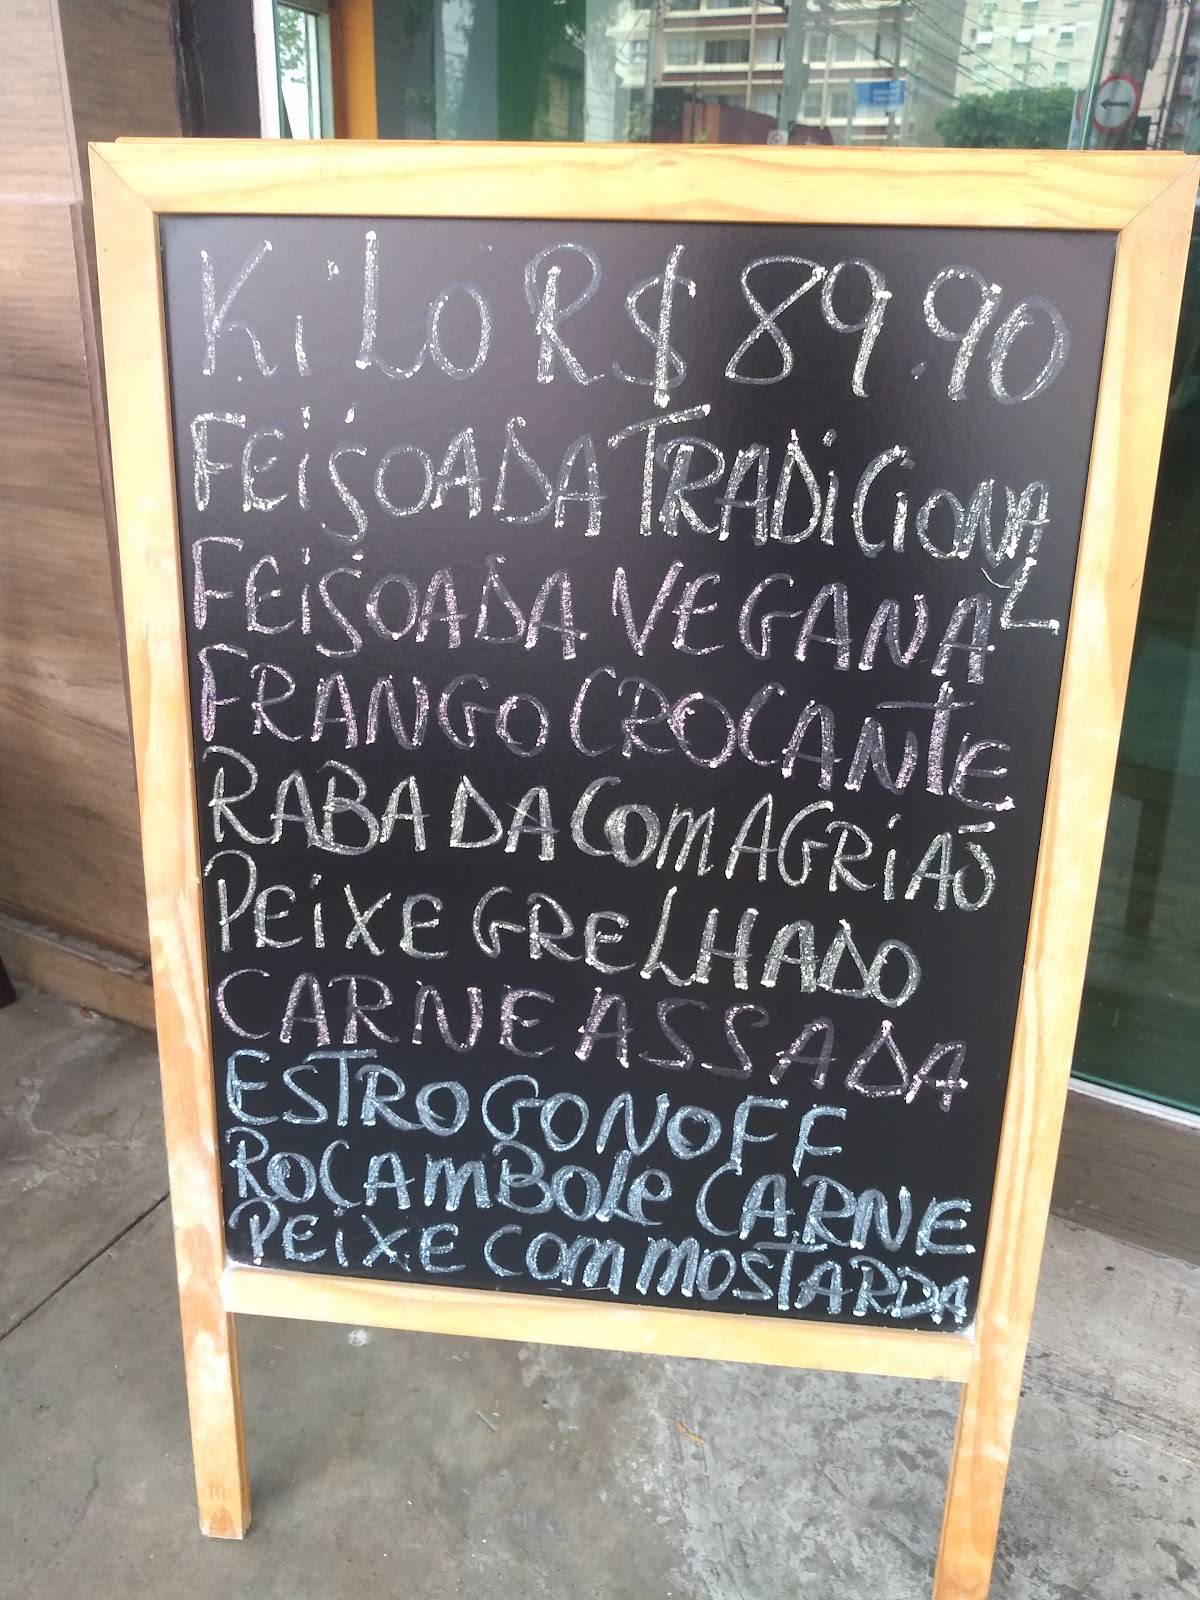 KiLO R$ 89.90
FEiJOADA TRADiCiONAL
FEiJOADA VEGANA
FRANGO CROCANTE
RABADA COM AGRiÃO
PEiXE GRELHADO
CARNE ASSADA
ESTROGONOFF
ROCAMBOLE CARNE
PEiXE COM MOSTARDA